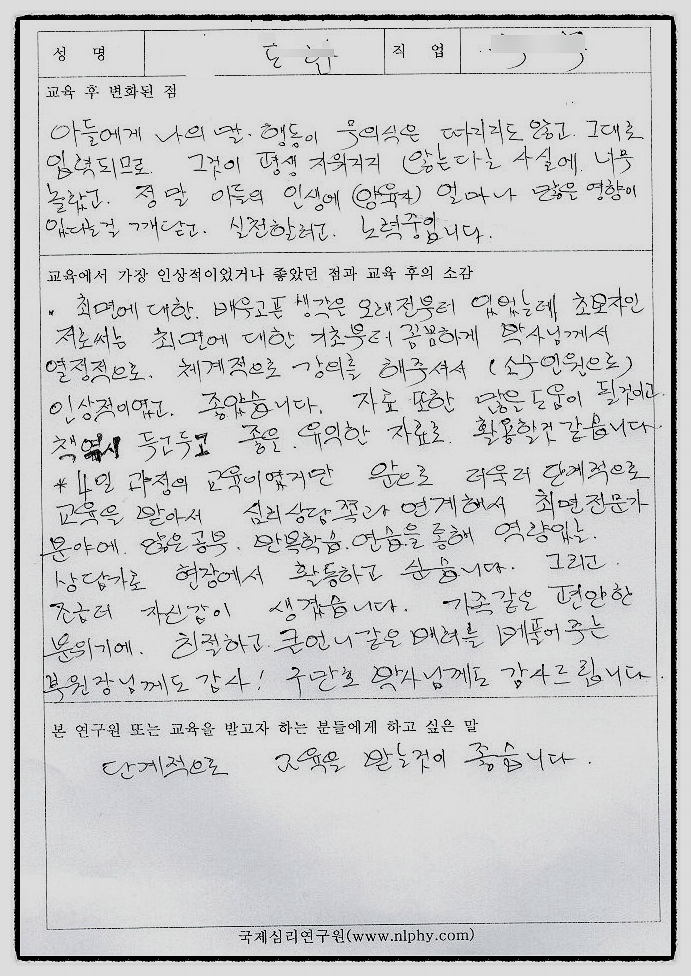 성 명 직 업
교육 후 변화된 점
아들에게 나의 말. 행동이 무의식은 따지지도 않고. 그대로
입력되므로. 그것이 평생 지워지지 (않는다)는 사실에. 너무
놀랐고. 정말 아들의 인생에 (양육자) 얼마나 많은 영향이
있다는걸 깨닫고. 실천할려고. 노력중입니다.
교육에서 가장 인상적이었거나 좋았던 점과 교육 후의 소감
* 최면에 대한. 배우고픈 생각은 오래전부터 있었는데, 초보자인
저로써는 최면에 대한 기초부터 꼼꼼하게 박사님께서
열정적으로. 체계적으로 강의를 해주셔서 (소수인원으로)
인상적이였고. 좋았습니다. 자료 또한 많은 도움이 될것이고.
책 역시 두고두고 좋을. 유익한 자료로. 활용할것 같습니다.
* 4일 과정의 교육이였지만 앞으로 더욱더 단계적으로
교육을 받아서 심리상담쪽과 연계해서 최면전문가
분야에. 많은공부. 반복학습. 연습을 통해 역량있는.
상담가로 현장에서 활동하고 싶습니다. 그리고.
조금더 자신감이 생겼습니다. 가족같은 편안한
분위기에. 친절하고. 큰언니같은 배려를 베풀어 주는
부원장님께도 감사! 구만호 박사님께도 감사드립니다.
본 연구원 또는 교육을 받고자 하는 분들에게 하고 싶은 말
단계적으로 교육을 받는것이 좋습니다.
국제심리연구원(www.nlphy.com)